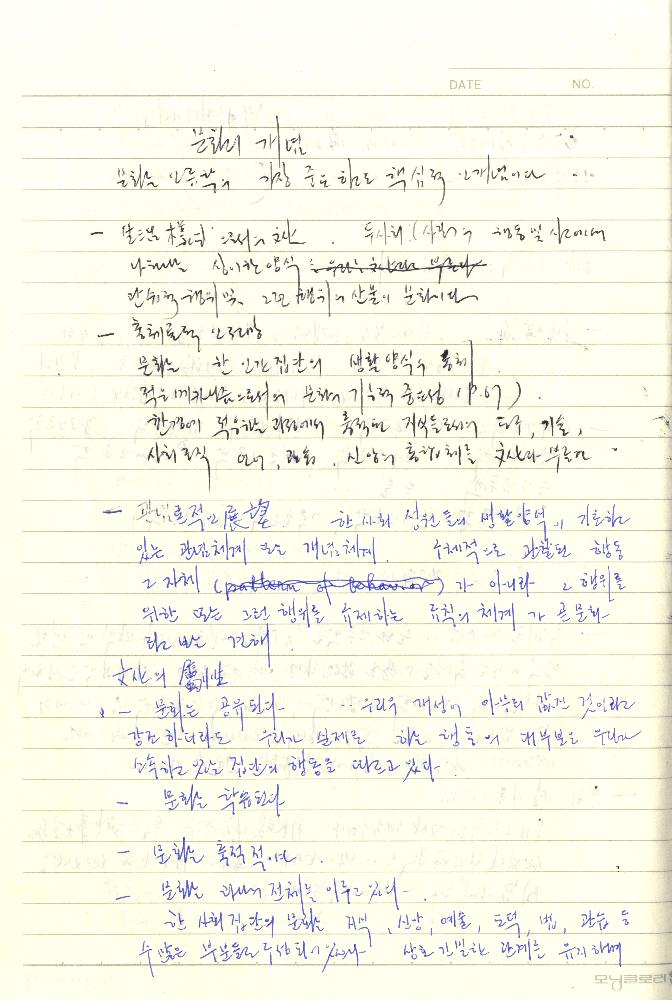 DATE NO.
문화의 개념
문화는 인류학의 가장 중요하고도 핵심적인 개념이다
- 生活樣式으로서의 文化. 두 사회(사람)의 행동 및 사고에서
나타나는 상이한 양식
관습적 행위 및 그런 행위의 산물이 문화이다
- 총체론적인 전망
문화는 한 인간집단의 생활양식의 총체
적응 메카니즘으로서의 문화의 기능적 중요성 (P.67).
환경에 적응하는 과정에서 축적된 지식들로서의 도구, 기술,
사회조직 언어, 관습, 신앙의 통합체를 文化라 부른다
- 관념론적인 展望 한 사회 성원들의 생활양식이 기초하고
있는 관념체계 또는 개념체계. 구체적으로 관찰된 행동
그 자체 (pattern of behavior)가 아니라 그 행위를
위한 또는 그런 행위를 규제하는 규칙의 체계가 곧 문화
라고 보는 견해
文化의 屬性
- 문화는 공유된다 우리의 개성이 아무리 값진 것이라고
강조하더라도 우리가 실제로 하는 행동의 대부분은 우리가
소속하고 있는 집단의 행동을 따르고 있다.
- 문화는 학습된다
- 문화는 축적적이다.
- 문화는 하나의 전체를 이루고 있다.
한 사회집단의 문화는 지식, 신앙, 예술, 도덕, 법, 관습 등
수많은 부분들로 구성되어 있다 상호 긴밀한 관계를 유지하며
모닝글로리